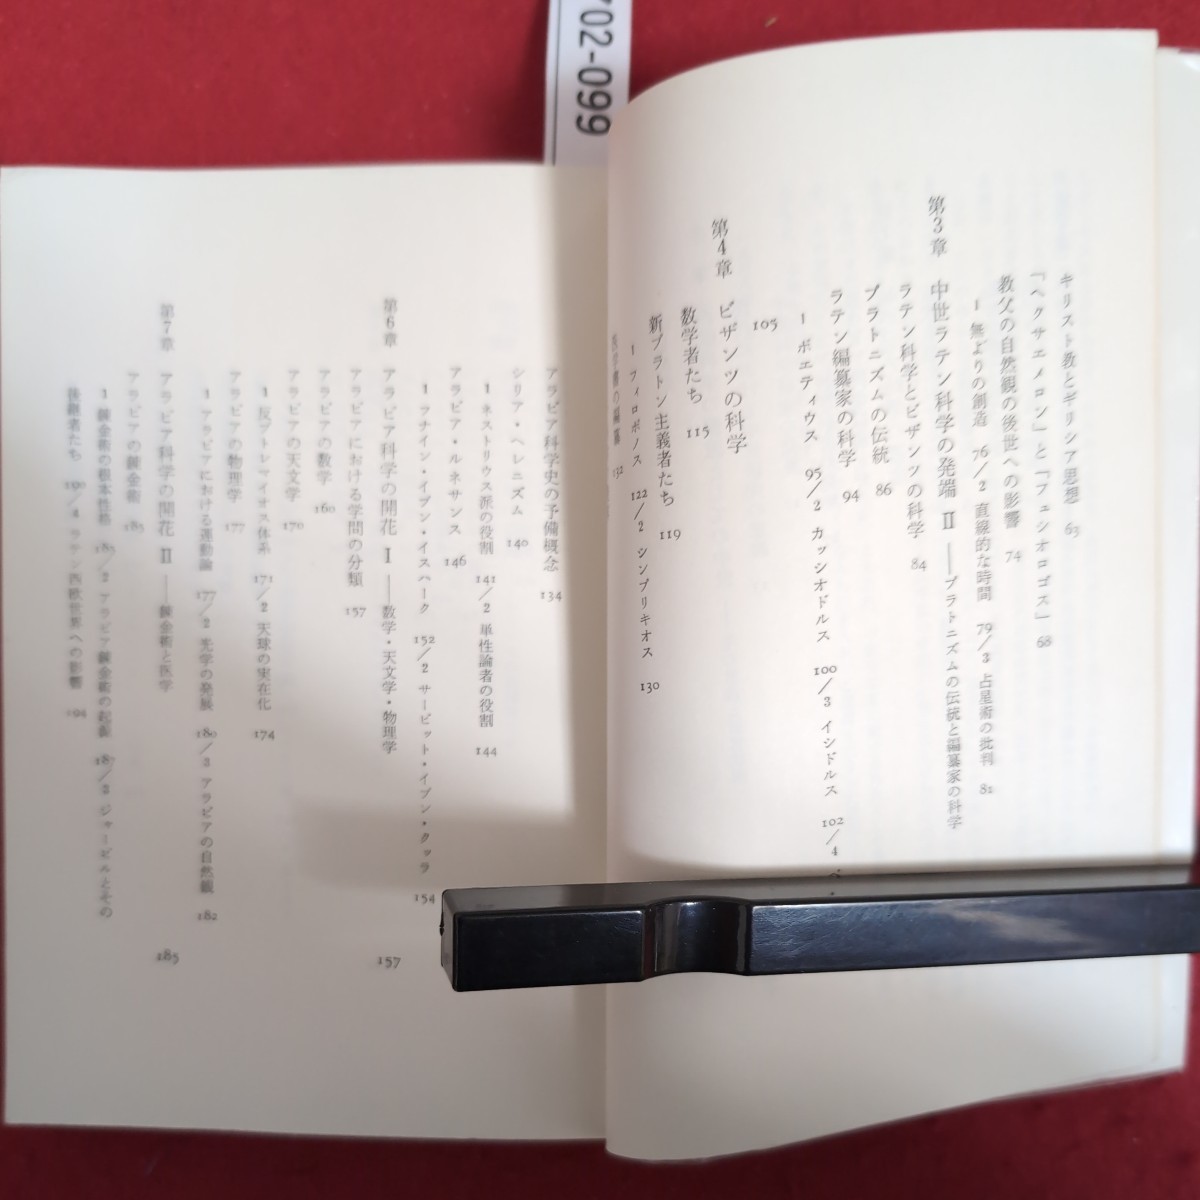 702-099
キリスト教とギリシア思想 63
「ヘクサエメロン」と「フュシオロゴス」 68
教父の自然観の後世への影響 74
1 無よりの創造 76/2 直線的な時間 79/3 占星術の批判 81
第3章 中世ラテン科学の発端 II ――プラトニズムの伝統と編纂家の科学
ラテン科学とビザンツの科学 84
プラトニズムの伝統 86
ラテン編纂家の科学 94
1 ボエティウス 95/2 カッシオドルス 100/3 イシドルス 102/4
105
第4章 ビザンツの科学
数学者たち 115
新プラトン主義者たち 119
1 フィロポノス 122/2 シンプリキオス 130
132
アラビア科学史の予備概念 134
シリア・ヘレニズム 140
1 ネストリウス派の役割 141/2 単性論者の役割 144
アラビア・ルネサンス 146
1 フナイン・イブン・イスハーク 152/2 サービット・イブン・クッラ 154
第6章 アラビア科学の開花 I ――数学・天文学・物理学 157
アラビアにおける学問の分類 157
アラビアの数学 160
アラビアの天文学 170
1 反プトレマイオス体系 171/2 天球の実在化 174
アラビアの物理学 177
1 アラビアにおける運動論 177/2 光学の発展 180/3 アラビアの自然観 182
第7章 アラビア科学の開花 II ――錬金術と医学 185
アラビアの錬金術 185
1 錬金術の根本性格 185/2 アラビア錬金術の起源 187/3 ジャービルとその
後継者たち 190/4 ラテン西欧世界への影響 194